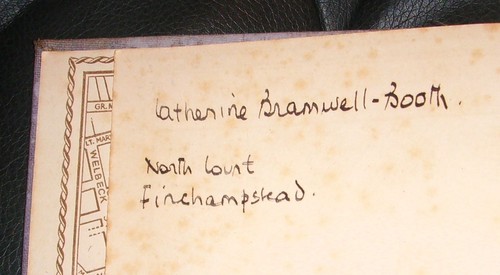 Catherine Bramwell-Booth.
North Court
Finchampstead.
GR. M
LT. MAR
WELBECK